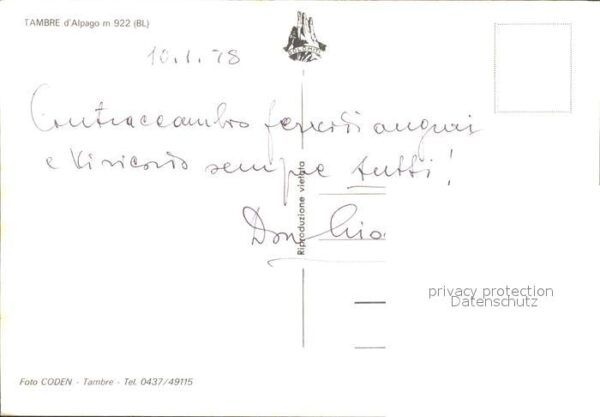 TAMBRE d'Alpago m 922 (BL)
10.1.78
Contraccambio fervidi auguri
e Vi ricordo sempre tutti!
Don Gio
Riproduzione vietata
privacy protection
Datenschutz
Foto CODEN - Tambre - Tel. 0437/49115